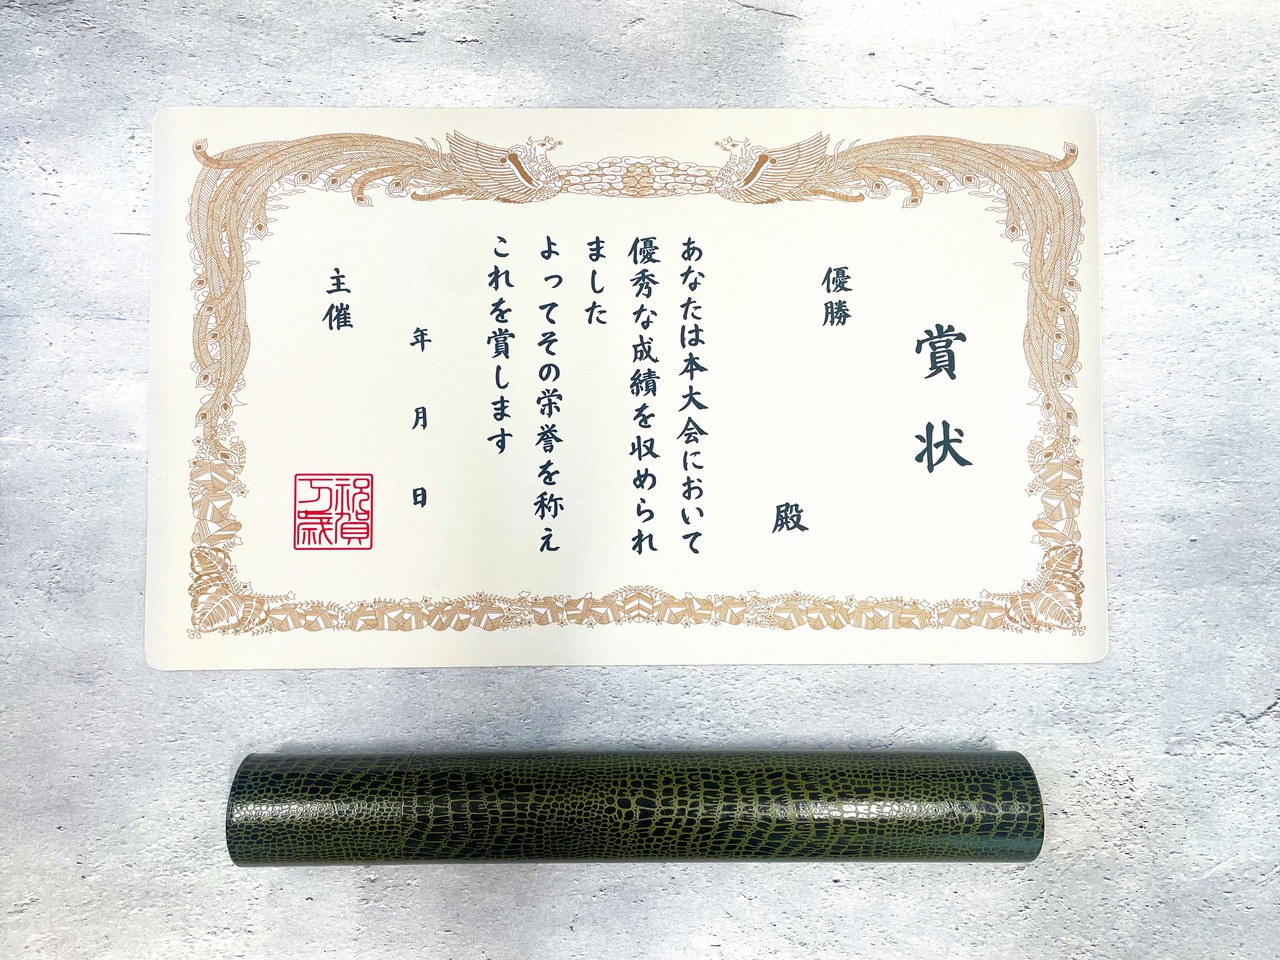 賞状
優勝
殿
あなたは本大会において
優秀な成績を収められ
ました
よってその栄誉を称え
これを賞します
年 月 日
主催
祝賀
万歳